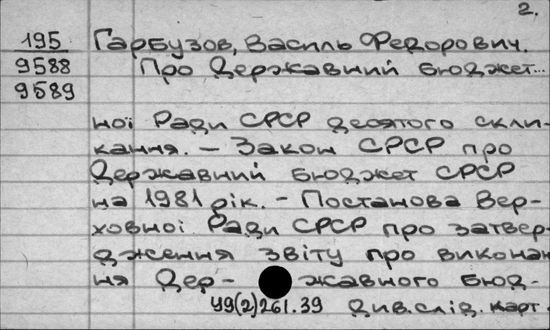 2.
195 Гарбузов, Василь Федорович.
9588 Про Державний бюджет...
9589
ної Ради СРСР десятого скли-
кання. – Закон СРСР про
Державний бюджет СРСР
на 1981 рік. – Постанова Вер-
ховної Ради СРСР про затвер-
дження звіту про виконан
ня Дер- жавного бюд-
У9(2)261.39 див.слід. карт